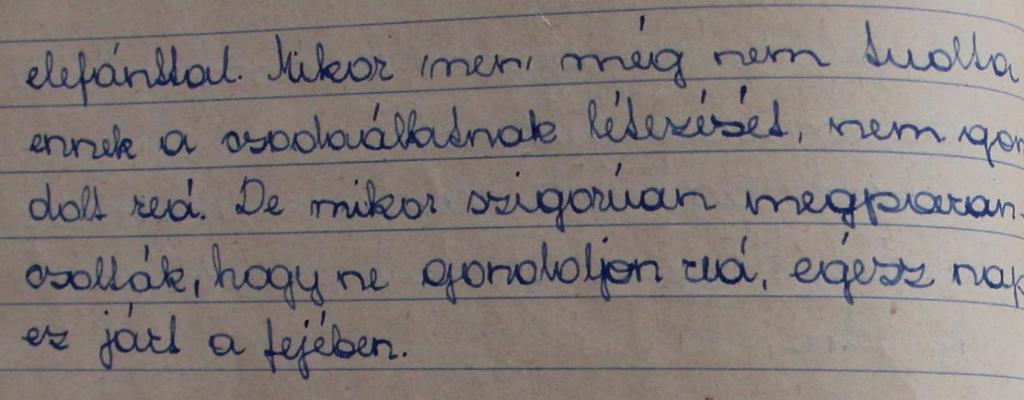 elefánttal. Mikor meri még nem tudta
ennek a csodaállatnak létezését, nem gon
dolt reá. De mikor szigorúan megparan-
csolták, hogy ne gondoljon reá, egész nap
ez járt a fejében.